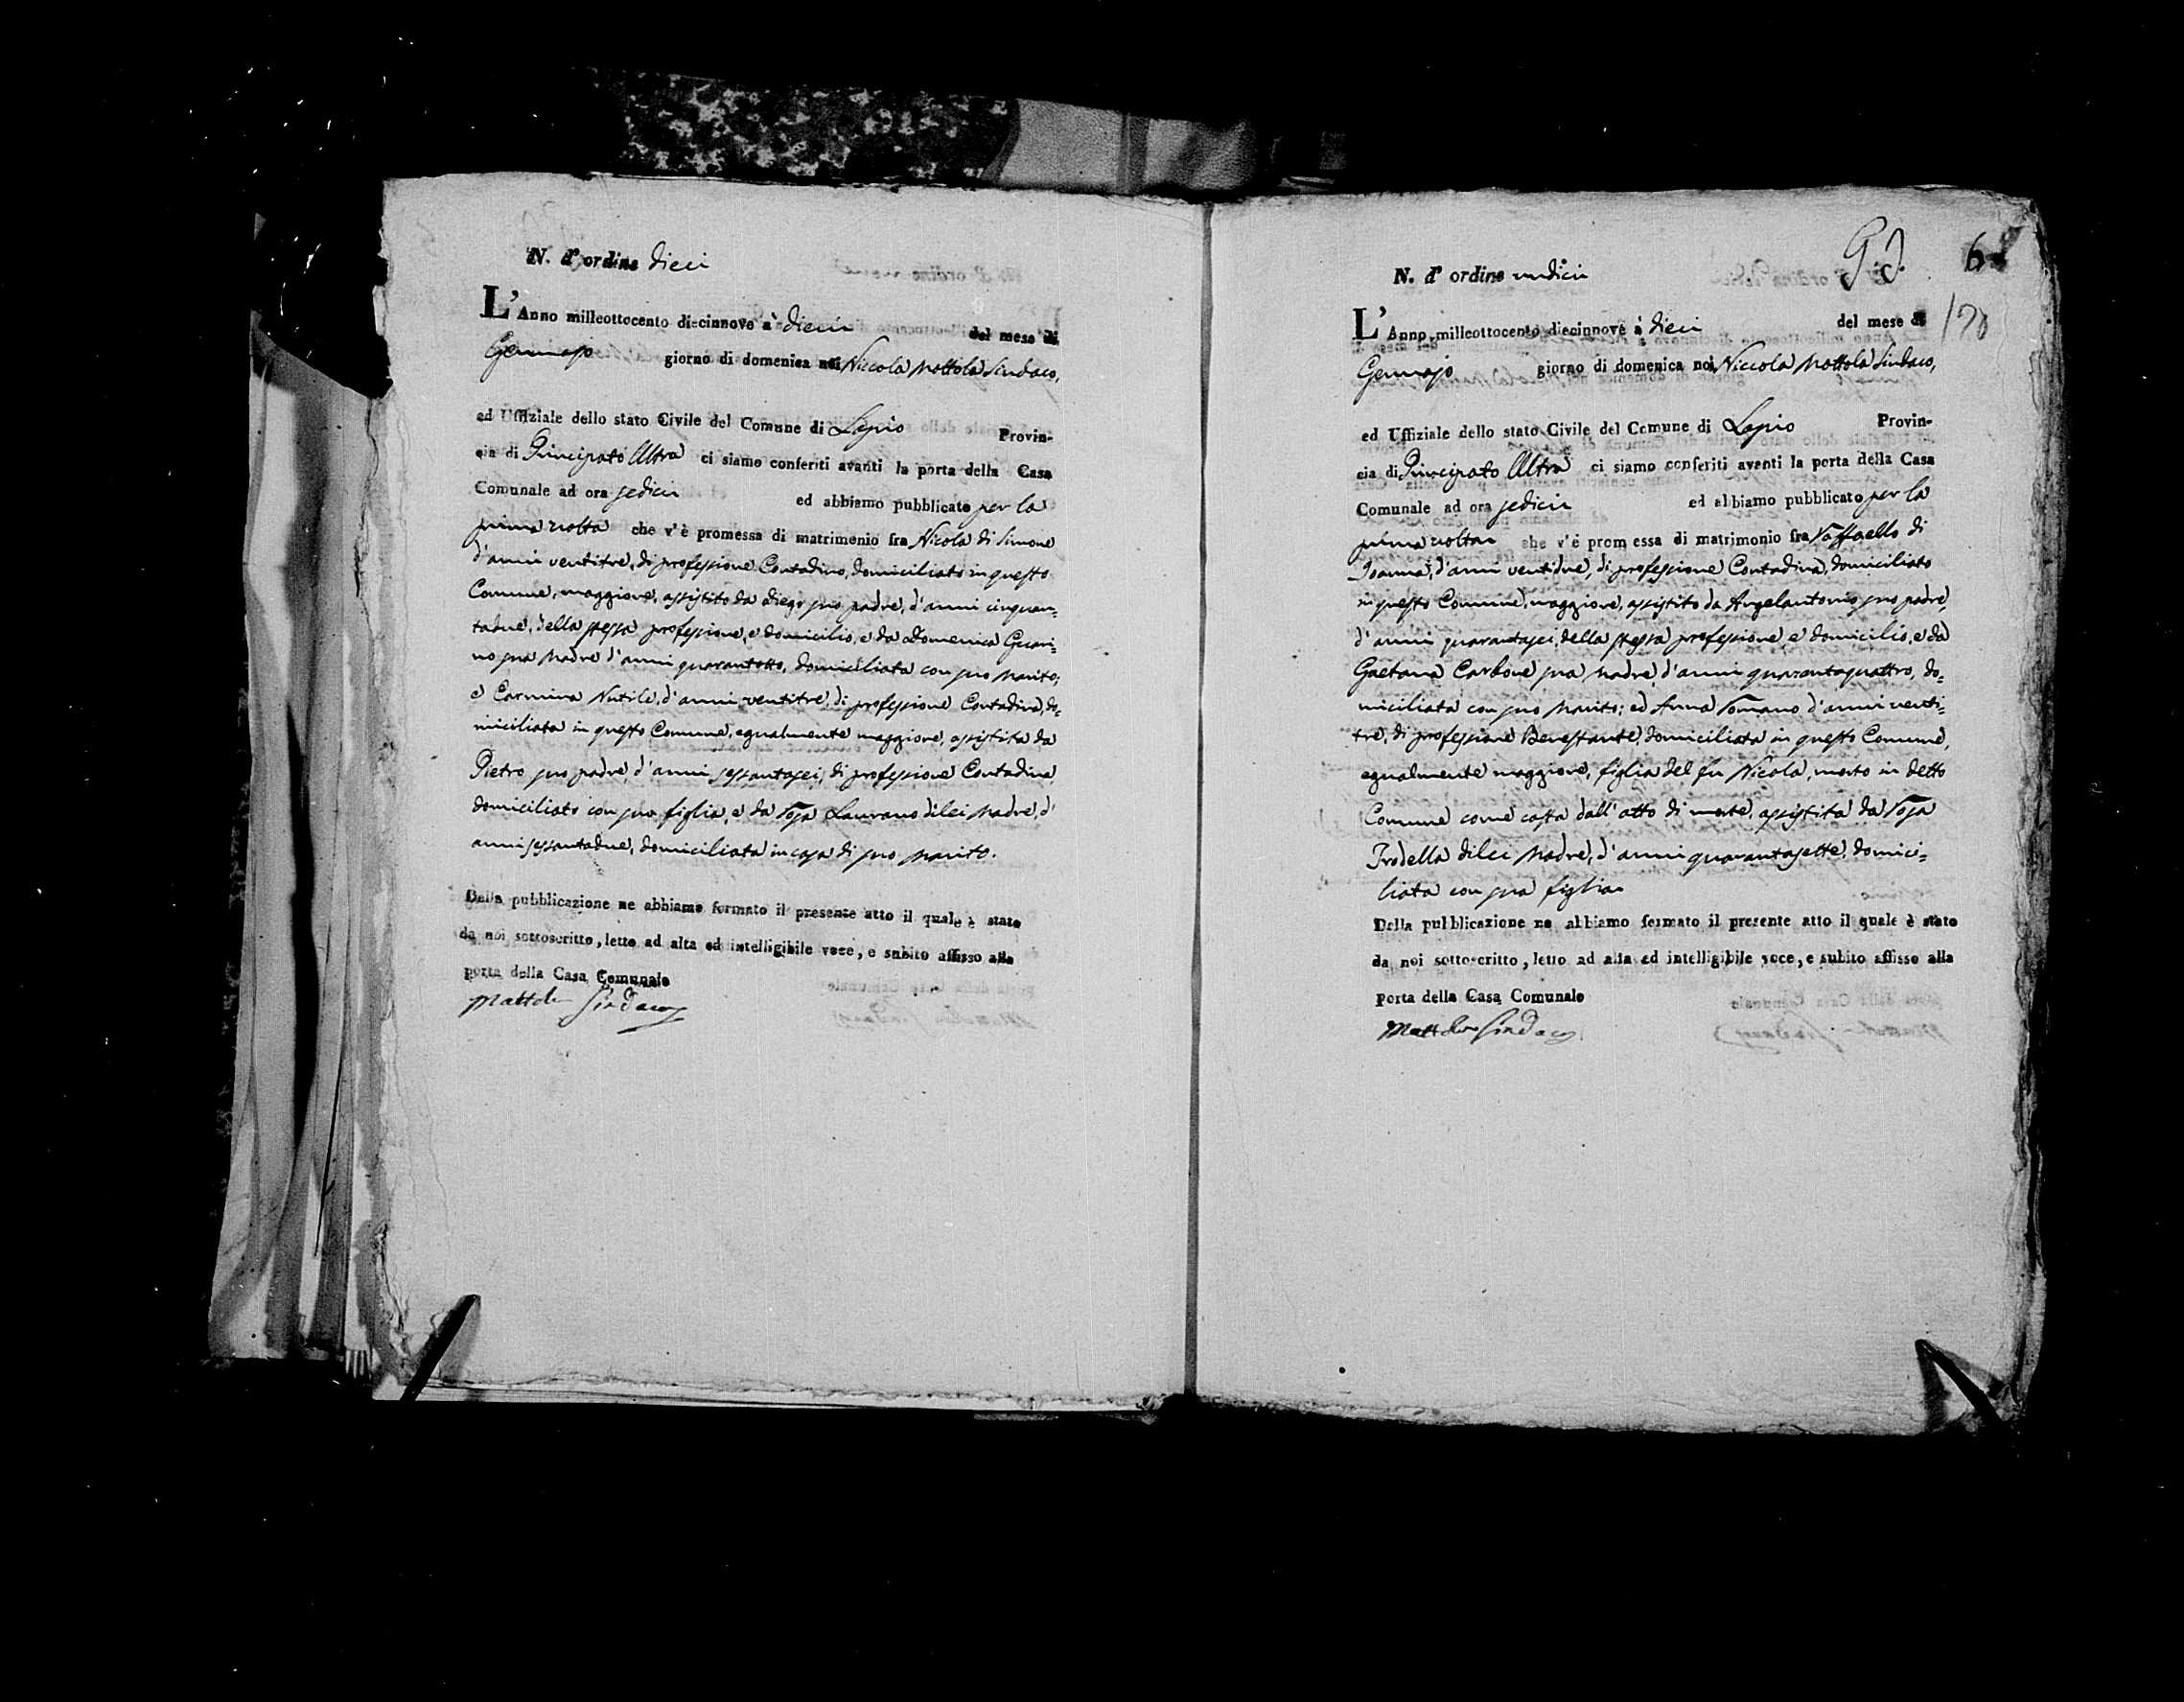 N. d'ordine dieci
L'Anno milleottocento diecinnove à dieci del mese di
Gennajo giorno di domenica noi Niccola Mottola Sindaco,
ed Uffiziale dello stato Civile del Comune di Lapio Provin-
cia di Principato Ultra ci siamo conferiti avanti la porta della Casa
Comunale ad ora sedici ed abbiamo pubblicato per la
prima volta che v'è promessa di matrimonio fra Nicola di Simone
d'anni ventitre, di professione Contadino, domiciliato in questo
Comune, maggiore, assistito da Diego suo padre, d'anni cinquan=
tadue, della stessa professione, e domicilio, e da Domenica Guari=
no sua Madre d'anni quarantotto, domiciliata con suo Marito;
e Carmina Nutile, d'anni ventitre, di professione Contadina, do=
miciliata in questo Comune, egualmente maggiore, assistita da
Pietro suo padre, d'anni sessantasei, di professione Contadina,
domiciliato con sua figlia, e da Rosa Laurano di lei Madre, d'
anni sessantadue, domiciliata in casa di suo Marito.
Della pubblicazione ne abbiamo formato il presente atto il quale è stato
da noi sottoscritto, letto ad alta ed intelligibile voce, e subito affisso alla
porta della Casa Comunale
Mottola Sindaco
G. J. 6
170
N. d'ordine undici
L'Anno milleottocento diecinnove à dieci del mese di
Gennajo giorno di domenica noi Niccola Mottola Sindaco,
ed Uffiziale dello stato Civile del Comune di Lapio Provin-
cia di Principato Ultra ci siamo conferiti avanti la porta della Casa
Comunale ad ora sedici ed abbiamo pubblicato per la
prima volta che v'è promessa di matrimonio fra Raffaello di
Joanna, d'anni ventidue, di professione Contadina, domiciliato
in questo Comune, maggiore, assistito da Angelantonio suo padre,
d'anni quarantasei, della stessa professione, e domicilio, e da
Gaetana Carbone sua Madre, d'anni quarantaquattro, do=
miciliata con suo Marito; ed Anna Romano d'anni venti=
tre, di professione Benestante, domiciliata in questo Comune,
egualmente maggiore, figlia del fu Nicola, morto in detto
Comune come costa dall'atto di morte, assistita da Rosa
Trodella di lei Madre, d'anni quarantasette, domici=
liata con sua figlia
Della pubblicazione ne abbiamo formato il presente atto il quale è stato
da noi sottoscritto, letto ad alta ed intelligibile voce, e subito affisso alla
porta della Casa Comunale
Mottola Sindaco